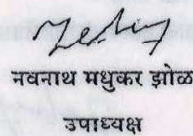 नवनाथ मधुकर झोळ
उपाध्यक्ष